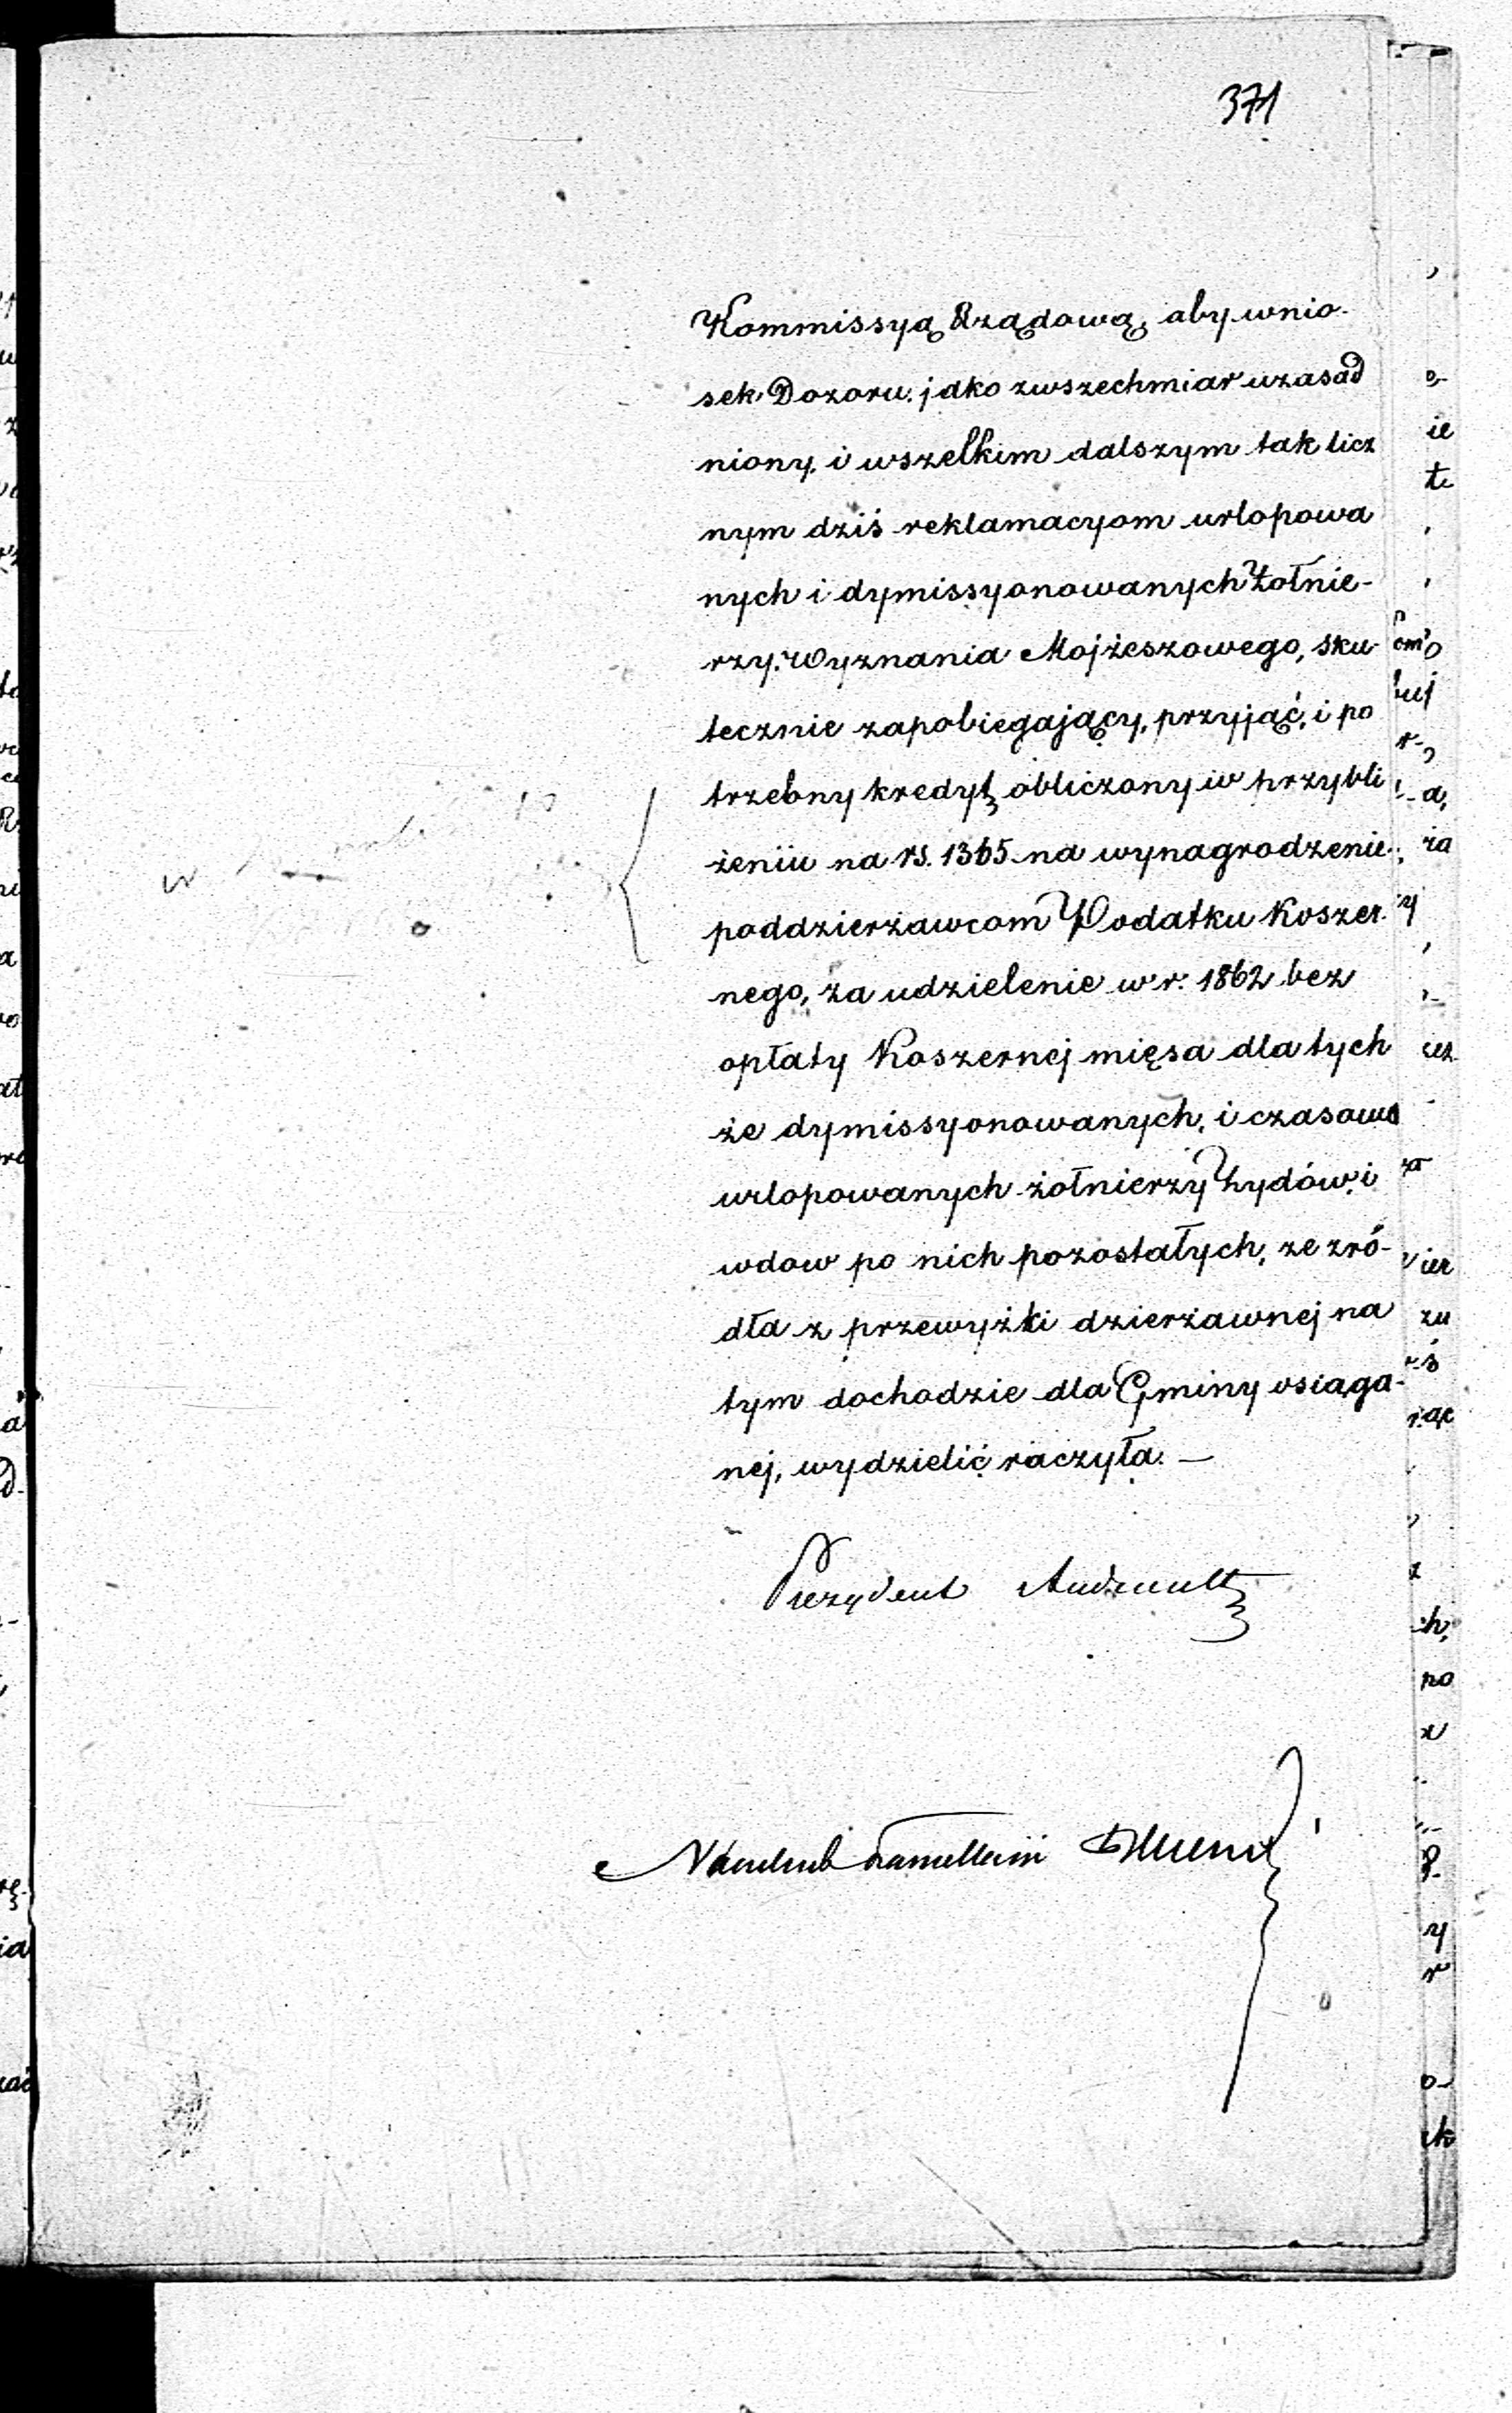 371
Kommissyą Rządową, aby wnio-
sek Dozoru, jako zwszechmiar uzasad
niony, i wszelkim dalszym tak licz
nym dziś reklamacyom urlopowa
nych i dymissyonowanych Żołnie-
rzy Wyznania Mojżeszowego, sku-
tecznie zapobiegający, przyjąć, i po
trzebny kredyt obliczony w przybli
żeniu na rs. 1365 na wynagrodzenie
poddzierżawcom Podatku Koszer-
nego, za udzielenie w r. 1862 bez
opłaty Koszernej mięsa dla tych
że dymissyonowanych, i czasowo
urlopowanych żołnierzy Żydów i
wdow po nich pozostałych, ze zró-
dła z przewyżki dzierżawnej na
tym dochodzie dla Gminy osiąga-
nej, wydzielić raczyła. —
Prezydent
Naczelnik Kancellarii